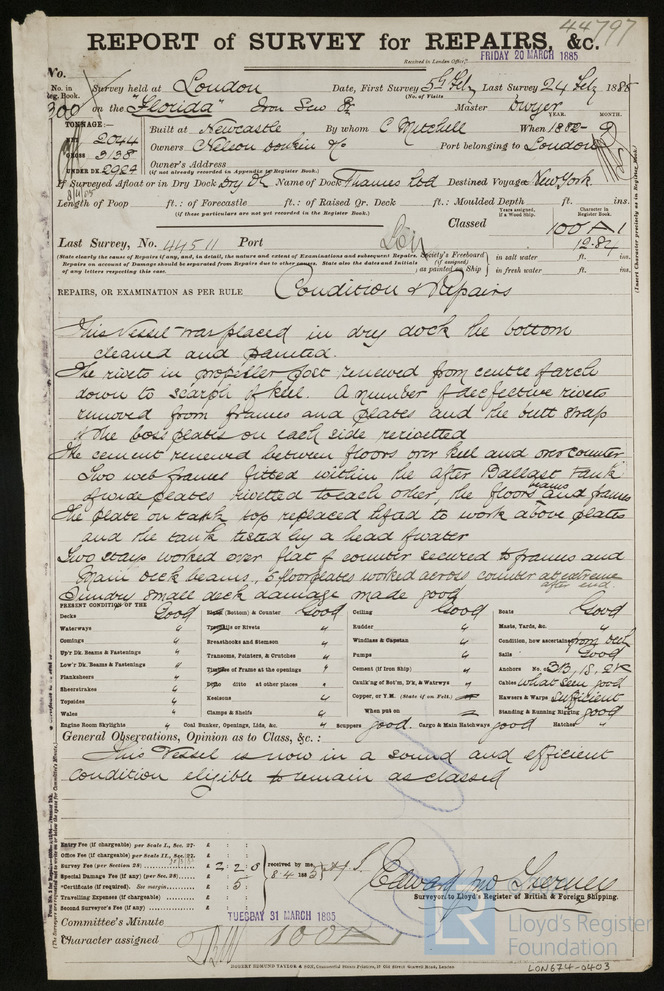 44797
REPORT of SURVEY for REPAIRS, &c.
Received in London Office, FRIDAY 20 MARCH 1885
No.
No. in Reg. Book. Survey held at London Date, First Survey 5th Feby Last Survey 24 Feby 1885
(No. of Visits
300 on the "Florida" Iron Scw Str Master Dwyer
TONNAGE:— YEAR. MONTH.
NET 2044 Built at Newcastle By whom C Mitchell When 1882-
GROSS 3138 Owners Nelson Donkin & Co Port belonging to London
UNDER DK 2924 Owner's Address
(if not already recorded in Appendix to Register Book.)
If Surveyed Afloat or in Dry Dock Dry Dk Name of Dock Thames Destined Voyage New York
Length of Poop ft.: of Forecastle ft.: of Raised Qr. Deck ft.: Moulded Depth ft. ins.
(if these particulars are not yet recorded in the Register Book.)
Years assigned, if a Wood Ship. Character in Register Book.
Classed 100 A 1
12.84
Last Survey, No. 44511 Port Lon
(State clearly the cause of Repairs if any, and, in detail, the nature and extent of Examinations and subsequent Repairs.
Repairs on account of Damage should be separated from Repairs due to other causes. State also the dates and Initials
of any letters respecting this case.)
Society's Freeboard (if assigned) as painted on Ship
in salt water ft. ins.
in fresh water ft. ins.
(Insert Character precisely as in Register Book.)
REPAIRS, OR EXAMINATION AS PER RULE Condition & Repairs
This Vessel was placed in dry dock the bottom
cleaned and painted.
The rivets in propeller post renewed from centre of arch
down to scarph of keel. A number of defective rivets
removed from frames and plates and the butt strap
of the boss plates on each side rerivetted
The cement renewed between floors over keel and over counter
Two web frames fitted within the after Ballast Tank
of wide plates rivetted to each other, the floors beams and frames
The plate on tank top replaced lifted to work above plates
and the tank tested by a head of water
Two stays worked over flat of counter secured to frames and
Main deck beams, 5 floorplates worked across counter at extreme after end
Sundry small deck damage made good
PRESENT CONDITION OF THE
Decks Good
Waterways "
Comings "
Up'r Dk. Beams & Fastenings "
Low'r Dk. Beams & Fastenings "
Planksheers "
Sheerstrakes "
Topsides "
Wales "
Engine Room Skylights "
(Bottom) & Counter Good
Treenails or Rivets "
Breasthooks and Stemson "
Transoms, Pointers, & Crutches "
Timbers of Frame at the openings "
Do ditto at other places "
Keelsons "
Clamps & Shelfs "
Coal Bunker, Openings, Lids, &c. "
Ceiling Good
Rudder "
Windlass & Capstan "
Pumps "
Cement (if Iron Ship) "
Caulk'g of Bot'm, D'k, & Watrw'ys "
Copper, or Y.M. (State if on Felt.)
When put on
Scuppers good. Cargo & Main Hatchways good
Boats Good
Masts, Yards, &c. "
Condition, how ascertained from Deck
Sails Good
Anchors No. 3B, 1S, 2K
Cables what seen good
Hawsers & Warps sufficient
Standing & Running Rigging good
Hatches "
General Observations, Opinion as to Class, &c.:
This Vessel is now in a sound and efficient
condition eligible to remain as classed
Entry Fee (if chargeable) per Scale I., Sec. 27. £ : :
Office Fee (if chargeable) per Scale II., Sec. 27. £ : :
Survey Fee (per Section 28) £ 2 : 2 : 0
Special Damage Fee (if any) (per Sec. 28) £ : :
*Certificate (if required). See margin. £ : 5 :
Travelling Expenses (if chargeable) £ : :
Second Surveyor's Fee (if any) £ : :
received by me, 8.4 1885
Surveyor to Lloyd's Register of British & Foreign Shipping.
Committee's Minute TUESDAY 31 MARCH 1885
Character assigned 100 A 1
Lloyd's Register
Foundation
LON674-0403